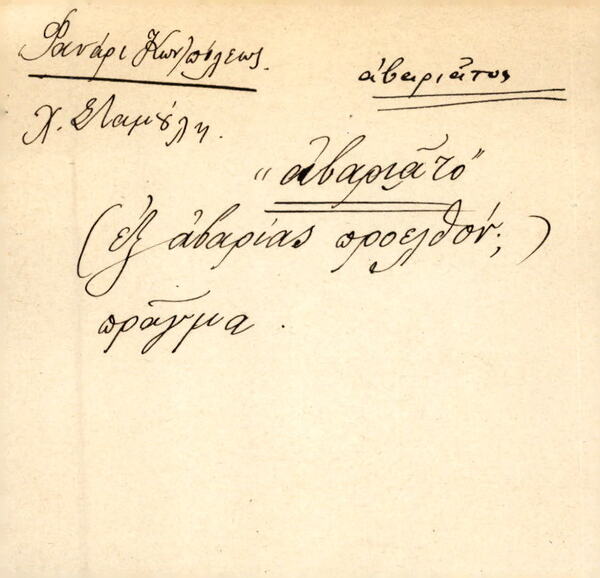 Φανάρι Κων/πόλεως.
ἀβαριᾶτος
Χ. Σταμούλη.
"ἀβαριᾶτο"
(ἐξ ἀβαρίας προελθόν;)
πρᾶγμα.